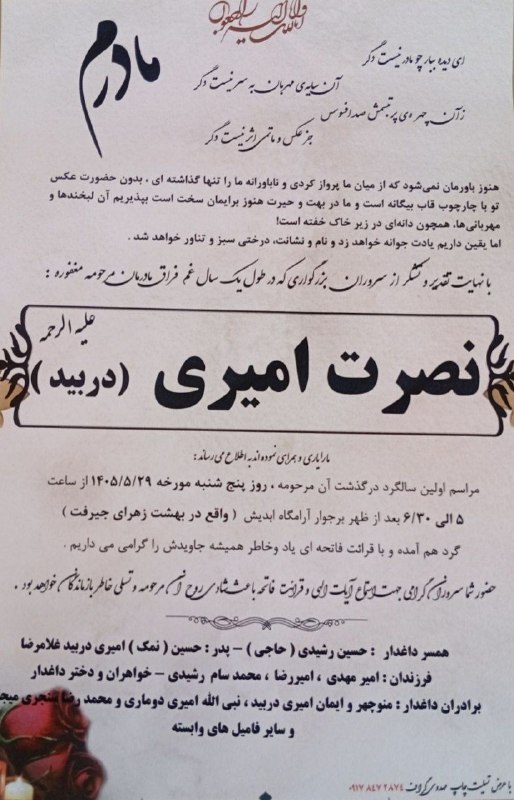 انا لله و انا الیه راجعون
مادرم
ای دیده ببار چو مادر نیست دگر
آن سایه‌ی مهربان به سر نیست دگر
زآن چهره‌ی پر تبسمش صد افسوس
جز عکس و ماتمی اثر نیست دگر
هنوز باورمان نمی‌شود که از میان ما پرواز کردی و ناباورانه ما را تنها گذاشته ای ، بدون حضورت عکس
تو با چارچوب قاب بیگانه است و ما در بهت و حیرت هنوز برایمان سخت است بپذیریم آن لبخندها و
مهربانی‌ها. همچون دانه‌ای در زیر خاک خفته است!
اما یقین داریم یادت جوانه خواهد زد و نام و نشانت، درختی سبز و تناور خواهد شد .
با نهایت تقدیر و تشکر از سروران بزرگواری که در طول یک سال غم فراق مادرمان مرحومه مغفوره :
علیه الرحمه
نصرت امیری (دربید)
ما را یاری و همراهی نموده اند به اطلاع می رساند:
مراسم اولین سالگرد درگذشت آن مرحومه ، روز پنج شنبه مورخه ۱۴۰۵/۵/۲۹ از ساعت
۵ الی ۶/۳۰ بعد از ظهر برجوار آرامگاه ابدیش ( واقع در بهشت زهرای جیرفت )
گرد هم آمده و با قرائت فاتحه ای یاد وخاطر همیشه جاویدش را گرامی می داریم .
حضور شما سروران گرامی جهت استماع آیات الهی و قرائت فاتحه باعث شادی روح آن مرحومه و تسلی خاطر بازماندگان خواهد بود .
همسر داغدار : حسین رشیدی ( حاجی ) – پدر : حسین ( نمک ) امیری دربید غلامرضا
فرزندان : امیر مهدی ، امیررضا ، محمد سام رشیدی – خواهران و دختر داغدار
برادران داغدار : منوچهر و ایمان امیری دربید، نبی الله امیری دوماری و محمد رضا سنجری میج
و سایر فامیل های وابسته
با عرض تسلیت چاپ مهدوی گراف ۰۹۱۷ ۸۴۷ ۲۸۷۴